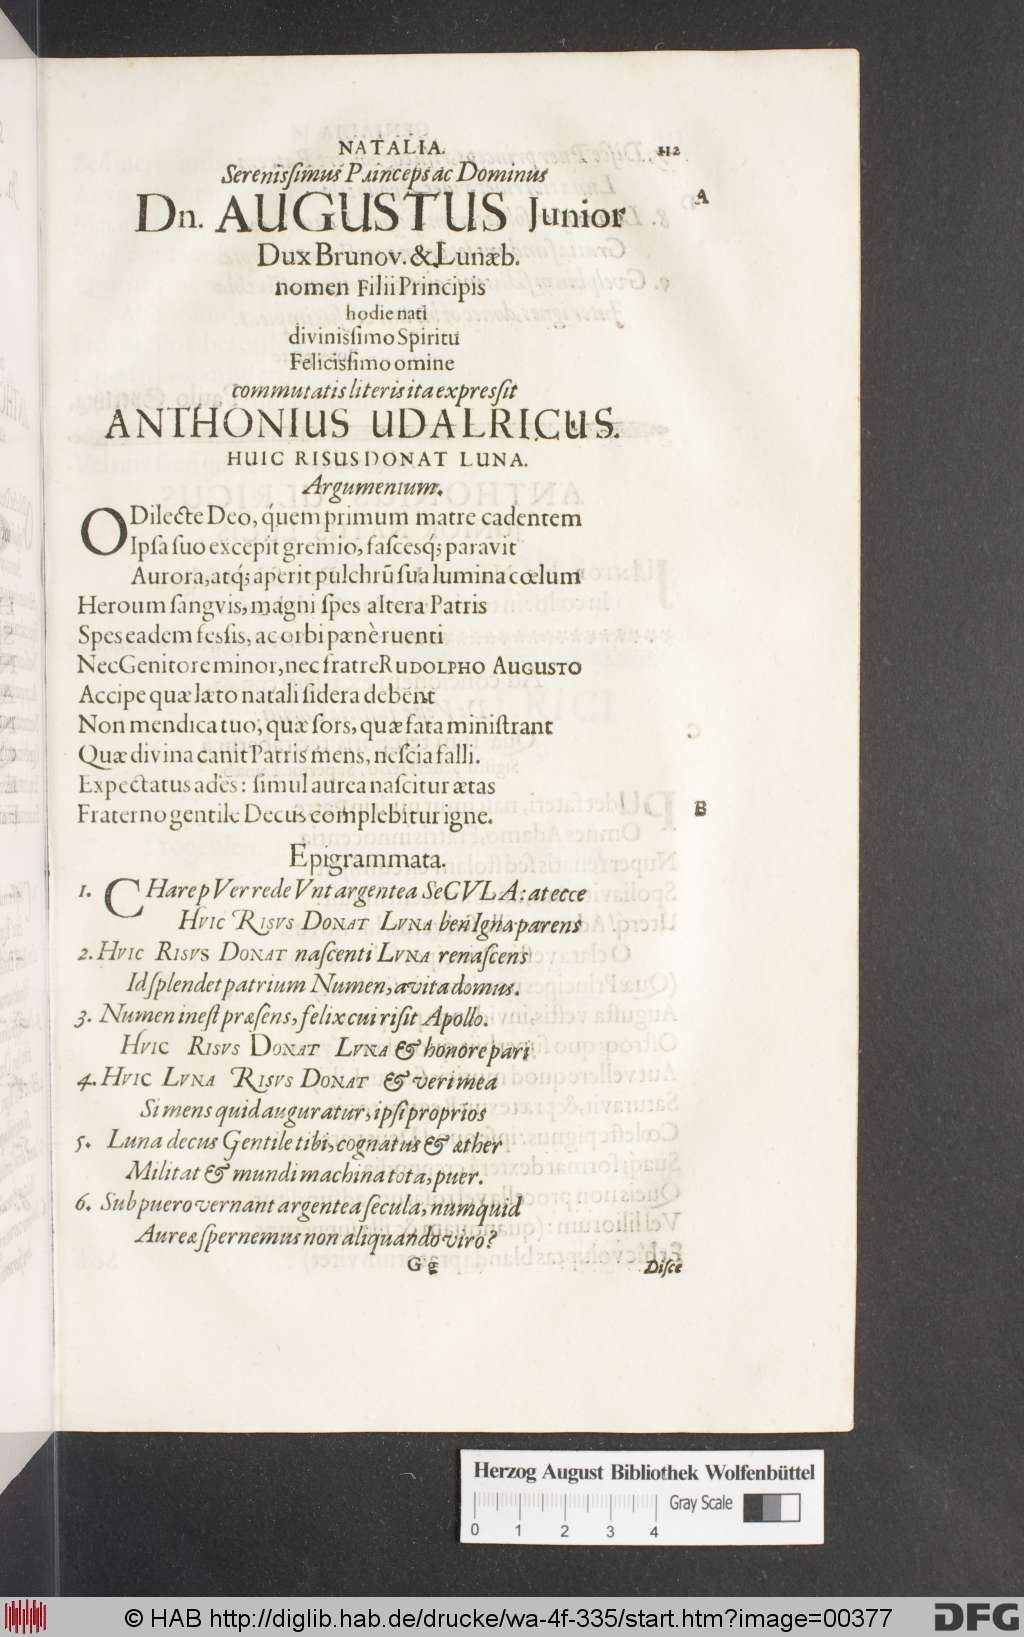 NATALIA. 112
Serenisſimus Princeps ac Dominus
A
Dn. AUGUSTUS Junior
Dux Brunov. & Lunæb.
nomen Filii Principis
hodie nati
divinisſimo Spiritu
Felicisſimo omine
commutatis literis ita expresſit
ANTHONIUS UDALRICUS.
HUIC RISUS DONAT LUNA.
Argumentum.
O Dilecte Deo, quem primum matre cadentem
Ipſa ſuo excepit gremio, faſcesq́; paravit
Aurora, atq́; aperit pulchrũ ſua lumina cœlum
Heroum ſangvis, magni ſpes altera Patris
Spes eadem fesſis, ac orbi pænè ruenti
Nec Genitore minor, nec fratre RUDOLPHO AUGUSTO
Accipe quæ læto natali ſidera debent
Non mendica tuo, quæ ſors, quæ fata miniſtrant
Quæ divina canit Patris mens, neſcia falli.
Expectatus ades: ſimul aurea naſcitur ætas
Fraterno gentile Decus complebitur igne.
B
Epigrammata.
1. CHare p Ver rede Vnt argentea SeCVLA: at ecce
HVIC RISVS DONAT LVNA benIgna parens
2. HVIC RISVS DONAT naſcenti LVNA renaſcens
Id ſplendet patrium Numen, avita domus.
3. Numen ineſt præſens, felix cui riſit Apollo.
HVIC RISVS DONAT LVNA & honore pari
4. HVIC LVNA RISVS DONAT & veri mea
Si mens quid auguratur, ipſi proprios
5. Luna decus Gentile tibi, cognatus & æther
Militat & mundi machina tota, puer.
6. Sub puero vernant argentea ſecula, numquid
Aurea ſpernemus non aliquando viro?
Gg Diſce
Herzog August Bibliothek Wolfenbüttel
Gray Scale
0 1 2 3 4
© HAB http://diglib.hab.de/drucke/wa-4f-335/start.htm?image=00377 DFG